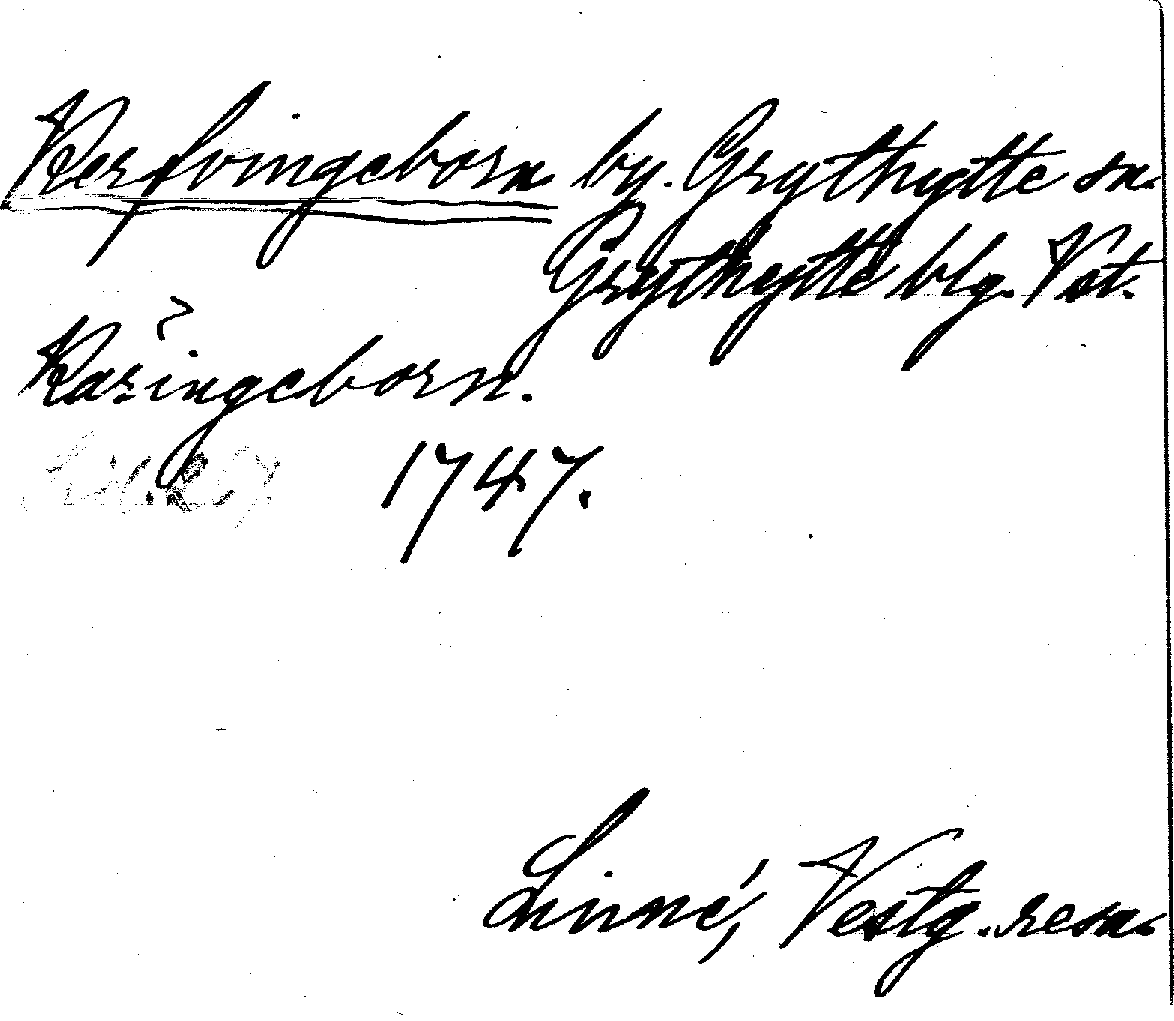 Kerfvingeborn by. Grythytte sn.
Grythytte blg. Vst.
?
Karingeborn.
1747.
Linné, Vestg. resa.